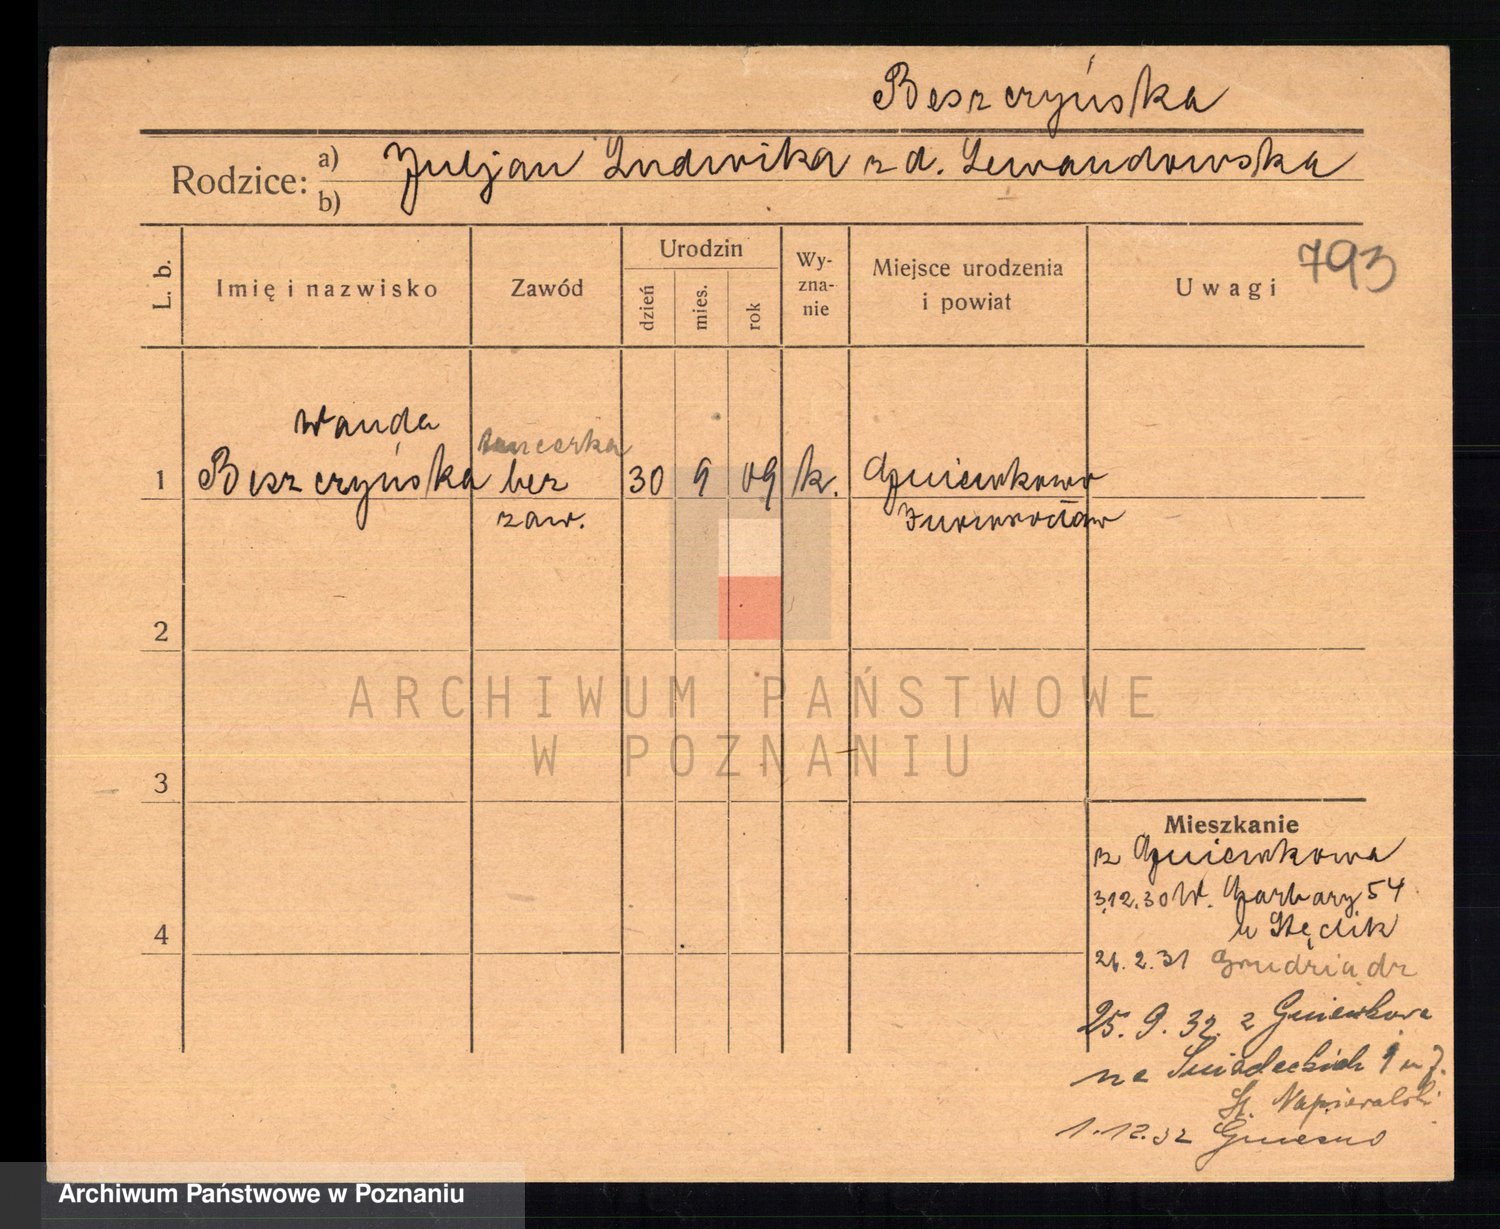 Beszczyńska
Rodzice: a) Juljan Ludwika z d. Lewandowska
b)
L. b. Imię i nazwisko Zawód Urodzin dzień mies. rok Wyznanie Miejsce urodzenia i powiat Uwagi 793
Wanda tancerka
1 Beszczyńska bez 30 9 09 k. Gniewkowo
zaw. Inowrocław
2
ARCHIWUM PAŃSTWOWE
W POZNANIU
3
Mieszkanie
z Gniewkowa
3.12.30 W. Garbary 54
4 u Stęclik
26.2.31 Grudziądz
25.9.32 z Gniewkowa
na Śniadeckich 9 m 7.
St. Napieralski
1.12.32 Gniezno
Archiwum Państwowe w Poznaniu